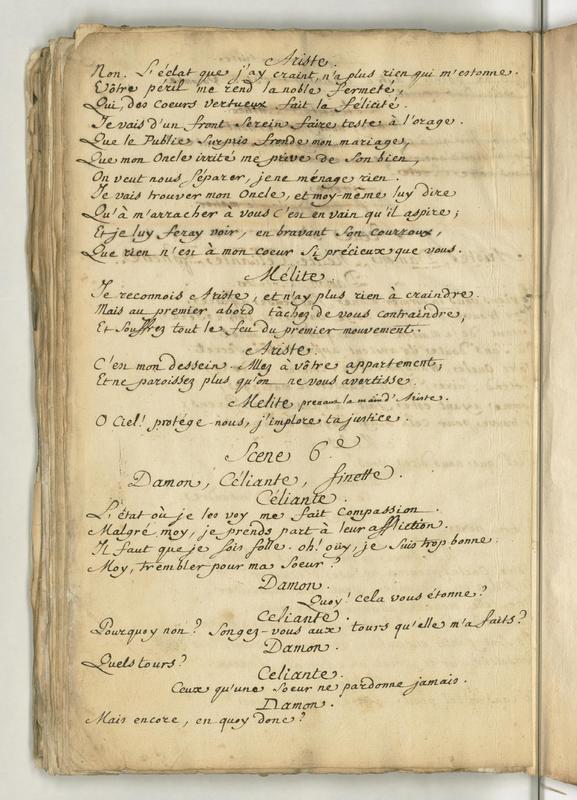 Ariste.
Non. L'éclat que j'ay craint, n'a plus rien qui m'estonne.
Vôtre péril me rend la noble fermeté,
Qui des Coeurs vertueux fait la félicité.
Je vais d'un front serein faire teste à l'orage.
Que le Public surpris fronde mon mariage,
Que mon Oncle irrité me prive de Son bien,
On veut nous séparer, je ne ménage rien.
Je vais trouver mon Oncle, et moy-même luy dire
Qu'à m'arracher à vous c'est en vain qu'il aspire;
Et je luy feray voir, en bravant Son courroux,
Que rien n'est à mon coeur Si précieux que vous.
Mélite.
Je reconnois Ariste, et n'ay plus rien à craindre.
Mais au premier abord tâchez de vous contraindre,
Et Souffrez tout le feu du premier mouvement.
Ariste.
C'est mon dessein. Allez à vôtre appartement;
Et ne paroissez plus qu'on ne vous avertisse.
Melite prenant la main d'Ariste.
O Ciel! protége-nous, j'implore ta justice.
Scene 6.e
Damon, Céliante, finette.
Céliante.
L'état où je les voy me fait Compassion.
Malgré moy, je prends part à leur affliction.
Il faut que je sois folle. oh! oüy, je suis trop bonne.
Moy, trembler pour ma Soeur?
Damon.
Quoy! cela vous étonne?
Celiante.
Pourquoy non? Songez-vous aux tours qu'elle m'a faits?
Damon.
Quels tours?
Celiante.
Ceux qu'une Soeur ne pardonne jamais.
Damon.
Mais encore, en quoy donc?